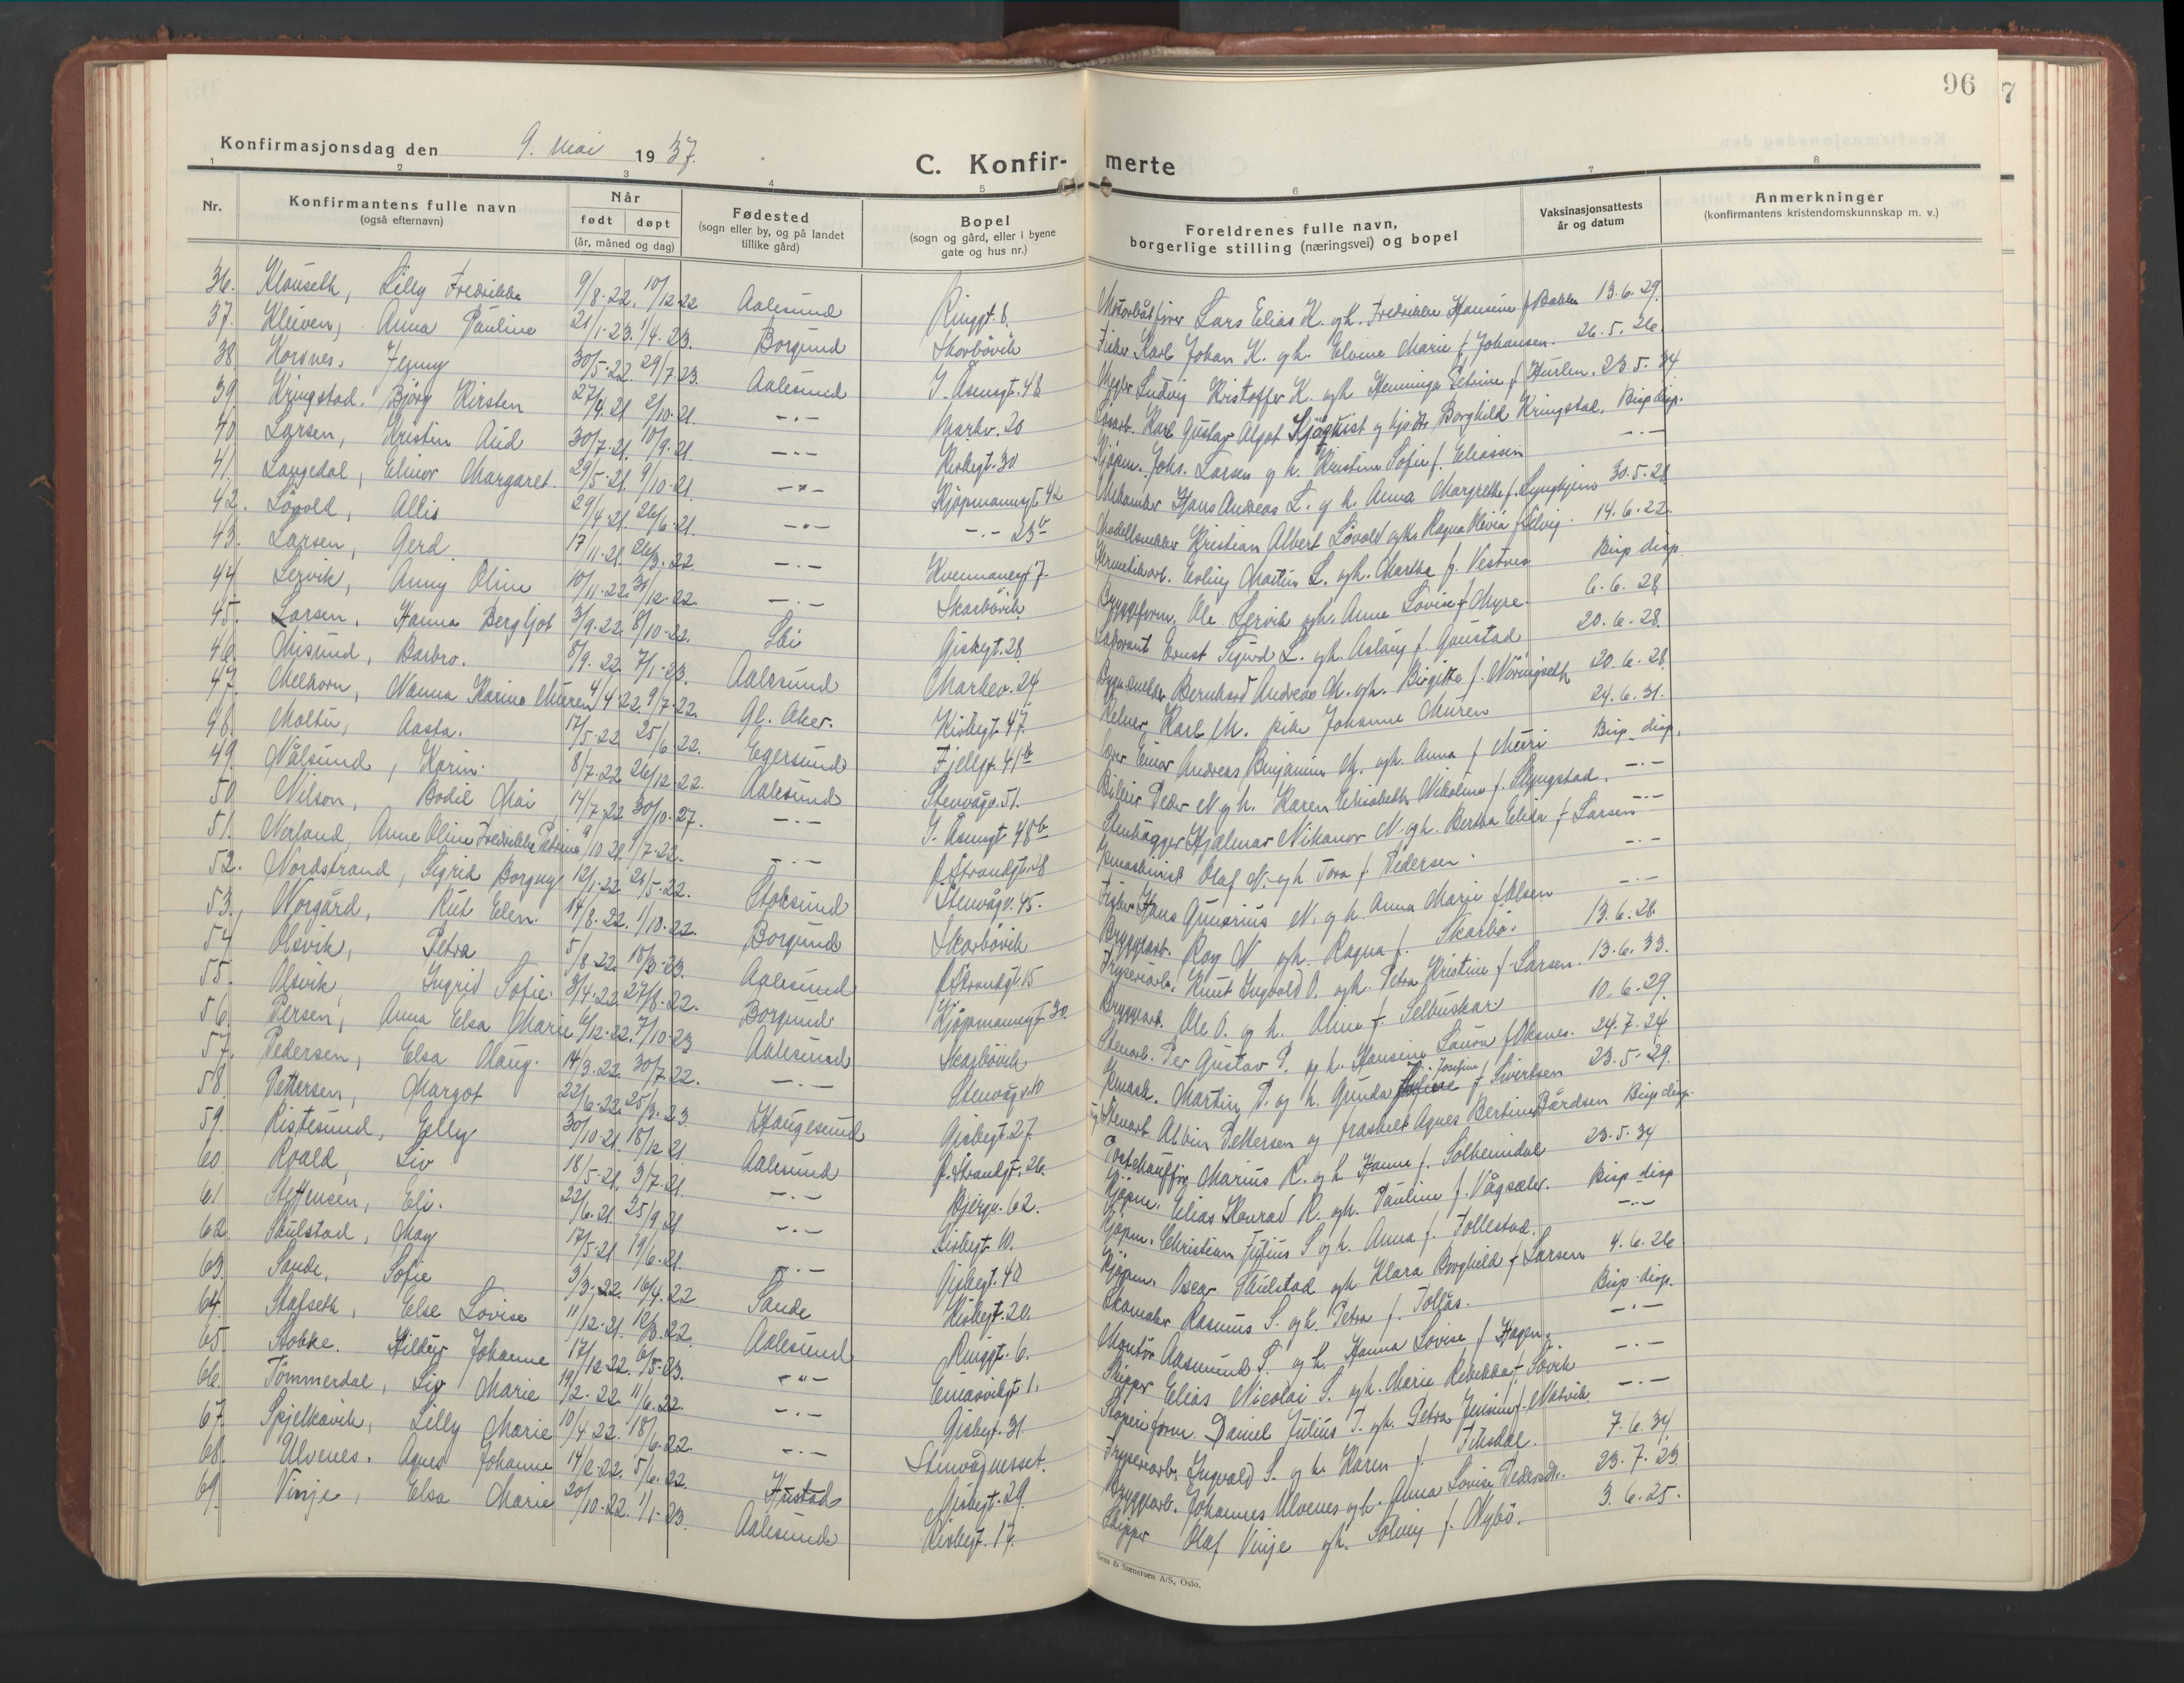 96
7
Konfirmasjonsdag den 9. mai 1937.
C. Konfirmerte
1 2 3 4 5 6 7 8
Nr. Konfirmantens fulle navn (også efternavn) Når født døpt (år, måned og dag) Fødested (sogn eller by, og på landet tillike gård) Bopel (sogn og gård, eller i byene gate og hus nr.) Foreldrenes fulle navn, borgerlige stilling (næringsvei) og bopel Vaksinasjonsattests år og datum Anmerkninger (konfirmantens kristendomskunnskap m. v.)
36. Klauseth, Lilly Fredrikke 9/8-22. 10/12-22 Aalesund Ringgt. 8. Motorbåtfører Lars Elias K. og h. Fredrikke Hansine f. Bakke 13.6.29.
37. Kleiven, Anna Pauline 21/1-23. 1/4-23. Borgund Skarbövik Fisker Karl Johan K. og h. Elvine Marie f. Johansen. 26.5.26.
38 Korsnes, Jenny 30/5-22. 29/7-23. Aalesund I. Åsensgt. 48 Megler Ludvig Kristoffer K. og h. Henninga Petrine f. Hurlen. 23.5.34
39 Kringstad. Björg Kirsten 27/4-21 2/10-21. -.- Markv. 20 Karl Gustav Algot Sjöquist og Borghild Kringstad. Bisp. disp.
40 Larsen, Kristin Aud 30/7-21. 10/9-21. -.- Kirkegt. 30 Kjöpm. Johs. Larsen og h. Kristine Sofie f. Eliassen -.-
41. Langedal, Elinor Margaret. 29/5-21. 9/10-21. -.- Kjöpmannsgt. 42 Hans Andreas L. og h. Anna Margrethe f. 30.5.28
42. Lövold, Allis 29/4-21. 26/6-21. -.- -.- 23b Modellsnekker Kristian Albert Lövold og h. Ragna Olivia f. 14.6.22.
43. Larsen, Gerd. 17/11-21. 26/3.22. -.- 7. Hermetikarb. Erling Martin L. og h. Martha f. Vestnes Bisp. disp.
44 Lervik, Anny Oline 10/11-22. 31/12-22. -.- Skarbövik Bryggeform. Ole Lervik og h. Anne Lovise f. Myre. 6.6.28
45. Larsen, Hanna Bergljot 3/9-22. 8/10-22. Ski Giskegt. 28. Laborant Ernst Sigurd L. og h. Aslaug f. Gaustad 20.6.28.
46. Misund, Barbro. 8/9-22. 7/1-23. Aalesund Markev. 24 Bernhard Andreas M. og h. Birgitte f. Nöringseth 20.6.28.
47. Melkorn, Nanna Karine Muren 4/4-22. 9/7-22. Gl. Aker. Kirkegt. 47. Kelner Karl M. pike Johanne Muren 24.6.31.
48. Moltu, Aasta. 17/5-22 25/6-22. Egersund Fjellgt. 41b Einar Andreas Benjamin M. og h. Anna f. Bisp. disp.
49. Nålsund, Karin. 8/7-22 26/12-22. Aalesund Stenvågv. 51. Peder N. og h. Karen Elisabeth Nikoline f. -.-
50 Nilson, Bodil Mai 14/7-22 30/10-27. -.- I. Åsensgt. 48b Stenhugger Hjalmar Nikanor N. og h. Bertha Elida f. Larsen -.-
51. Nerland, Anne Oline Fredrikke Petrine 9/10-21. 9/7-22. -.- Ø. Strandgt. 18 Olaf N. og h. Tora f. Pedersen. -.-
52. Nordstrand, Sigrid Borgny 12/1-22 21/5-22. Stoksund Stenvågv. 45. Fisker Hans Gunerius N. og h. Anna Marie f. Olsen -.-
53. Norgård, Rut Elen. 14/8-22. 1/10-22. Borgund Skarbövik Bryggearb. Roy N. og h. Ragna f. Skarbö. 13.6.28.
54 Olsvik, Petra 5/8-22. 18/3-23. Aalesund Ø. Strandgt. 15 Fryseriarb. Knut Ingvald O. og h. Petra Kristine f. Larsen. 13.6.33.
55. Olsvik, Ingrid Sofie. 3/4-22. 27/8-22. Borgund. Kjöpmannsgt. 30. Bryggearb. Ole O. og h. Anna f. Selbuskar. 10.6.29.
56. Persen, Anna Elsa Marie 6/12-22. 7/10-23 Aalesund Skarbövik Stenarb. Per Gustav P. og h. Hansine Laura f. Aksnes. 24.7.24
57. Pedersen, Elsa Aaug. 14/3-22. 30/7-22. -.- Stenvågv. 10 Martin P. og h. Gunda Josefine f. Sivertsen 23.5.29.
58. Pettersen, Margot 22/6-22. 25/3-23. Haugesund Giskegt. 27. Stenarb. Albin Pettersen og fraskilt Agnes Bertine Bårdsen Bisp. disp.
59. Ristesund, Elly 30/10-21. 18/12-21. Aalesund Ø. Strandgt. 26. Postchauffør Marius R. og h. Hanna f. Solheimdal 23.5.34
60. Roald, Liv 18/5-21. 3/7-21. -.- Bjergv. 62. Kjöpm. Elias Konrad R. og h. Pauline f. Vågsæter. Bisp. disp.
61 Steffensen, Eli. 22/6-21. 25/9-21 -.- Kirkegt. 10. Kjöpm. Christian Julius S. og h. Anna f. Follestad. -.-
62. Skulstad, May 17/5-21. 19/6-21. -.- Giskegt. 40 Kjöpm. Oscar Skulstad og h. Klara Borghild f. Larsen 4.6.26
63. Sande, Sofie 3/3-22. 16/4-22 Sande Kirkegt. 20. Skomaker Rasmus S. og h. Petra f. Tollås. Bisp. disp.
64. Stafseth, Else Lovise 11/12-21. 12/3-22. Aalesund Ringgt. 6. Montör Aasmund S. og h. Hanna Lovise f. Hagen. -.-
65. Stokke. Hildur Johanne 17/12-22. 6/5-23. -.- Einarvikgt. 1. Skipper Elias Nicolai S. og h. Marie Rebekka f. Sövik -.-
66. Tömmerdal, Liv Marie 19/2-22. 11/6-22. -.- Giskegt. 31. Stöperiform. Daniel Julius T. og h. Petra Jensine f. Malvik. -.-
67. Spjelkavik, Lilly Marie 10/4-22. 18/6-22. -.- Stenvågnesset. Fryseriarb. Ingvald S. og h. Karen f. Fiksdal. 7.6.34
68. Ulvenes. Agnes Johanne 14/2-22. 5/6-22. Hustad Giskegt. 29. Bryggearb. Johannes Ulvenes og h. Anna Lovise Pedersdtr. 23.7.23.
69. Vinje, Elsa Marie 20/10-22. 1/1-23. Aalesund Kirkegt. 17. Skipper Olaf Vinje og h. Solveig f. Nybö. 3.6.25.
Sem & Stenersen A/S, Oslo.